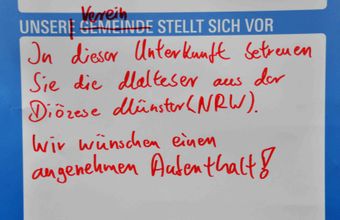 Verein
UNSERE GEMEINDE STELLT SICH VOR
In dieser Unterkunft betreuen
Sie die Malteser aus der
Diözese Münster (NRW).
Wir wünschen einen
angenehmen Aufenthalt!